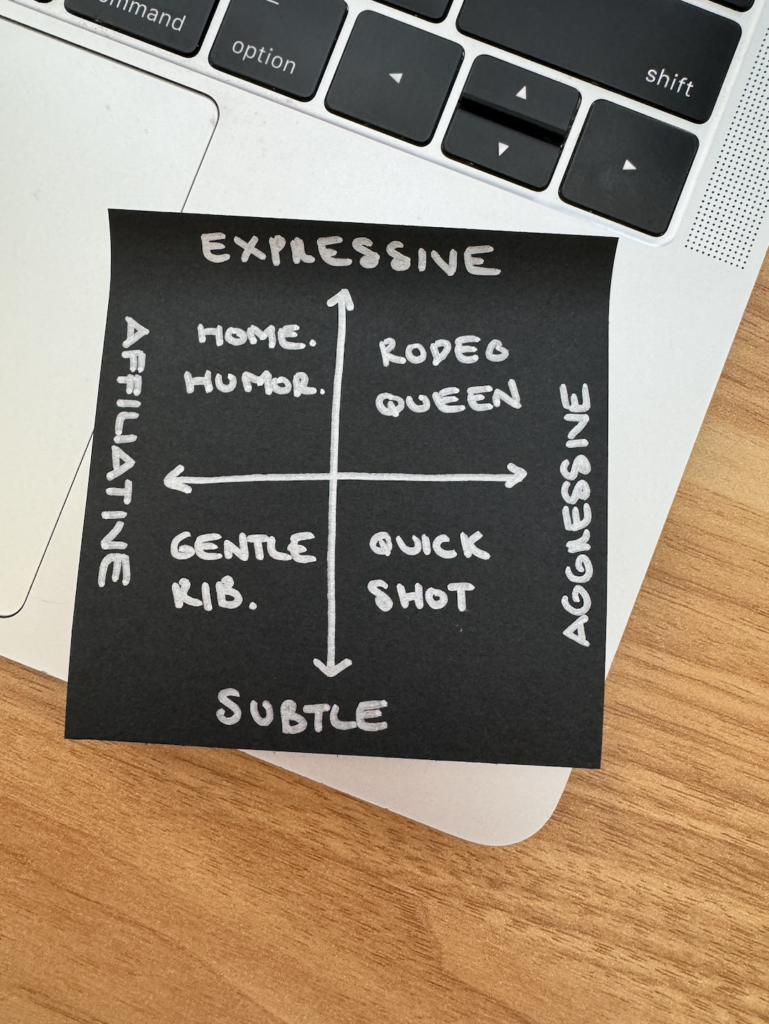 command
option
shift
EXPRESSIVE
HOME.
HUMOR.
RODEO
QUEEN
AFFILIATINE
AGGRESSINE
GENTLE
RIB.
QUICK
SHOT
SUBTLE